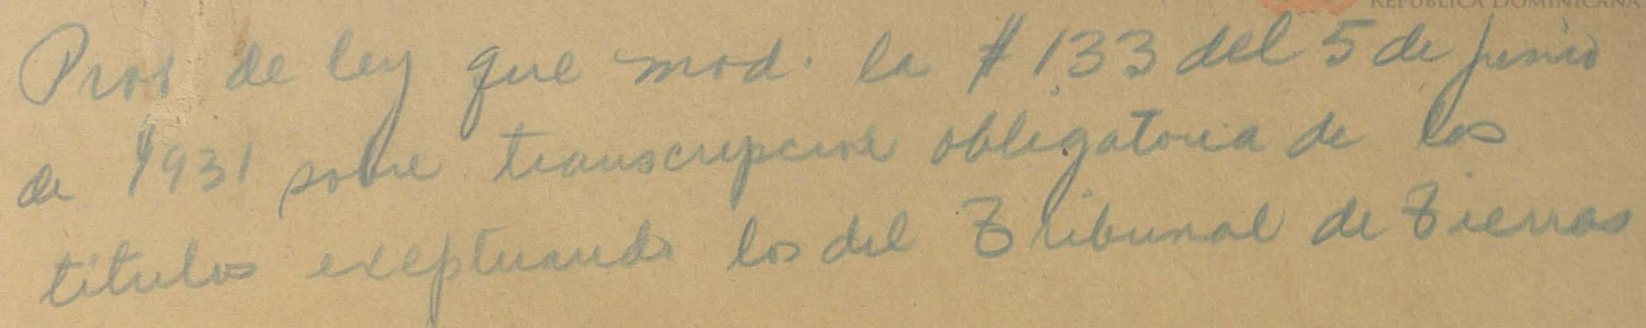 REPÚBLICA DOMINICANA
Proy de ley que mod. la # 133 del 5 de junio
de 1931 sobre transcripcion obligatoria de los
titulos exeptuando los del Tribunal de Tierras